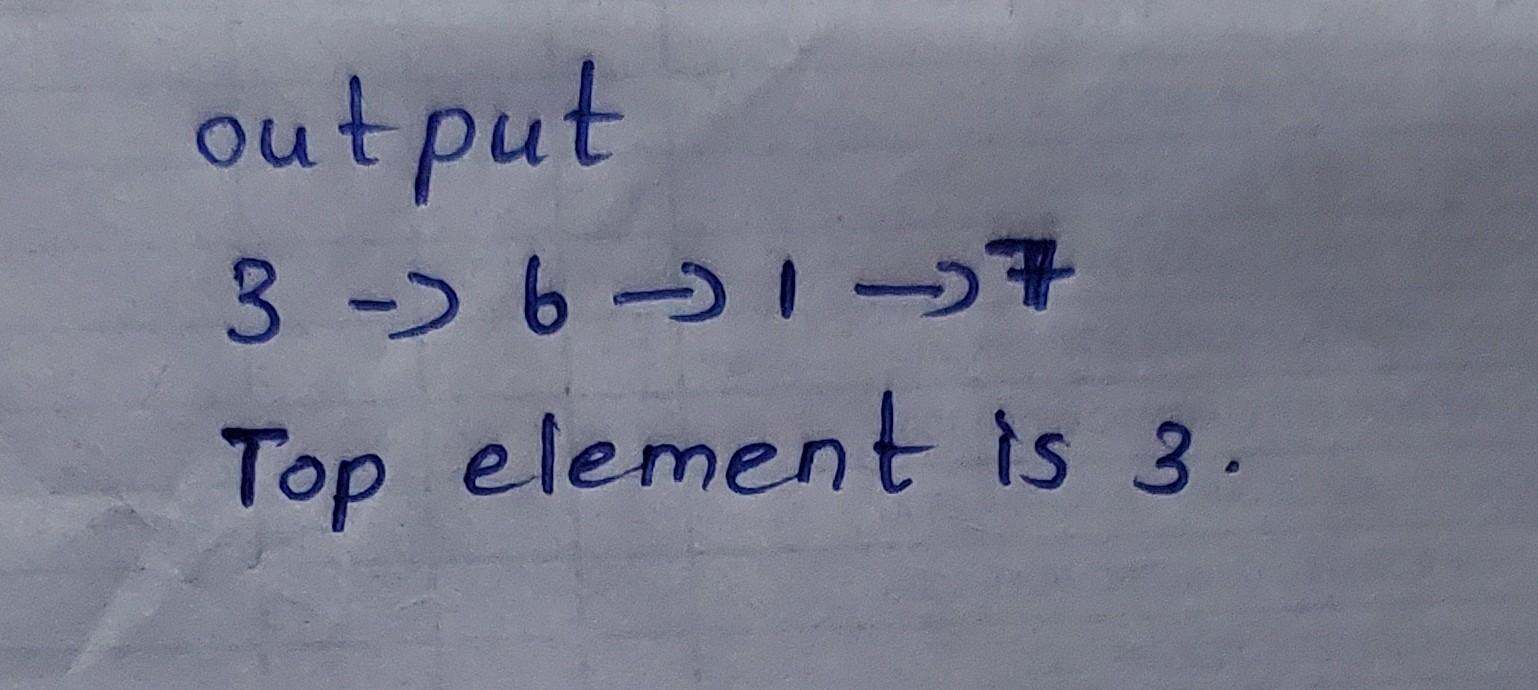 output
3 -> 6 -> 1 -> 7
Top element is 3.